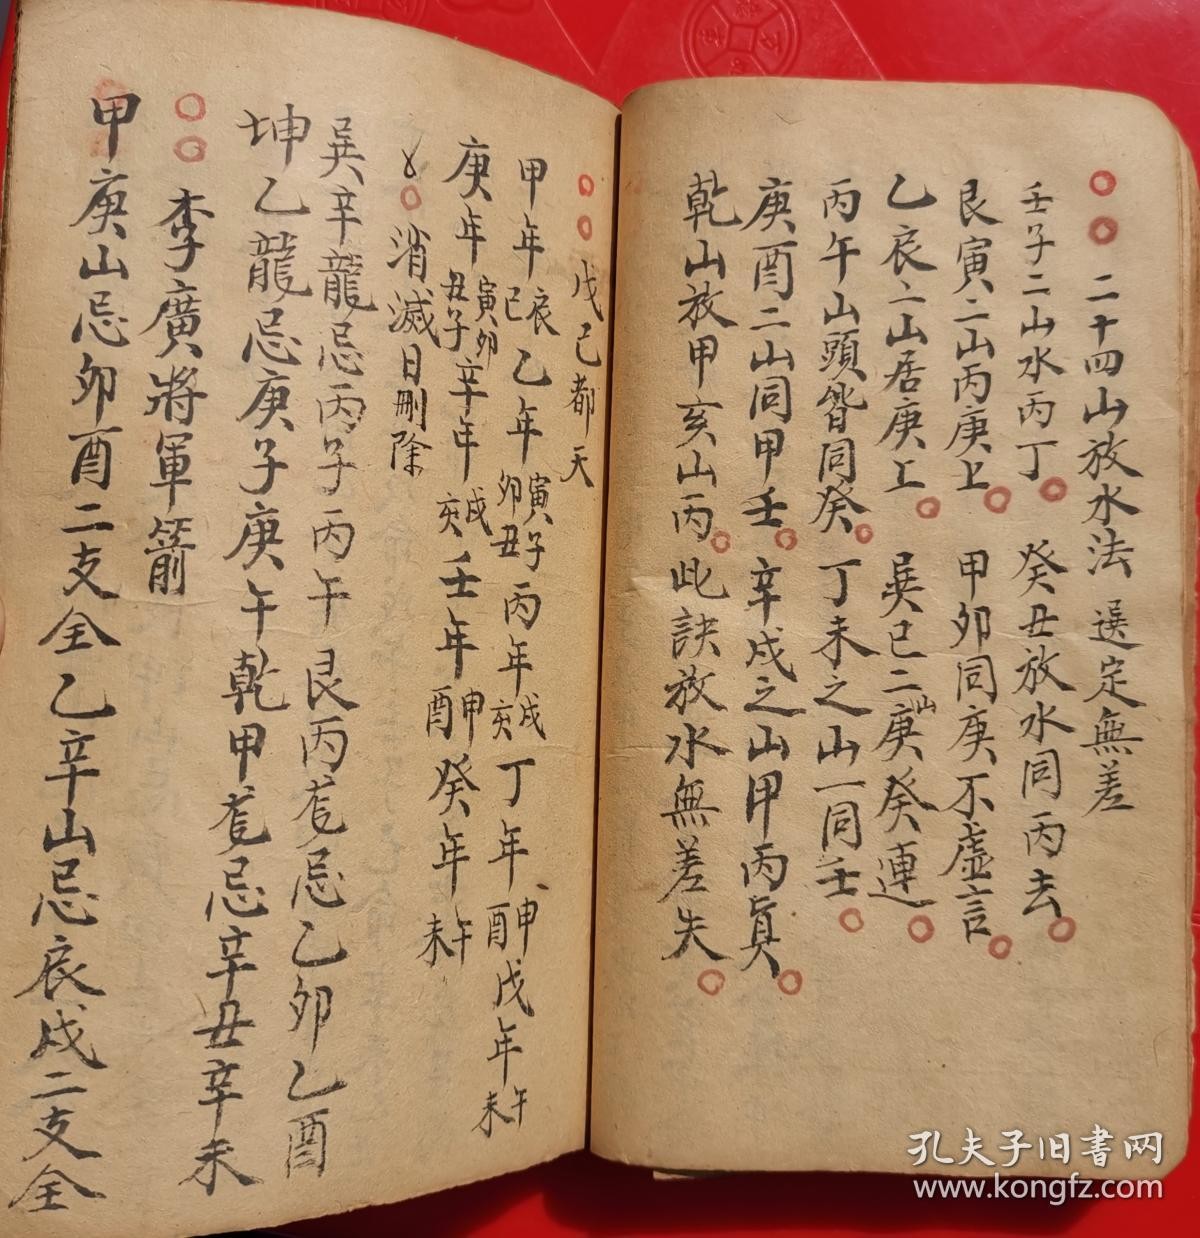 二十四山放水法 選定無差
壬子二山水丙丁 癸丑放水同丙去
艮寅二山丙庚上 甲卯同庚不虛言
乙辰二山居庚上 巽巳二山庚癸連
丙午山頭皆同癸 丁未之山一同壬
庚酉二山同甲壬 辛戌之山甲丙真
乾山放甲亥山丙 此訣放水無差失
戊己都天
甲年辰巳 乙年寅子卯丑 丙年戌亥 丁年申酉 戊年午未
庚年寅卯丑子 辛年戌亥 壬年申酉 癸年午未
消滅日刪除
巽辛龍忌丙子丙午 艮丙龙忌乙卯乙酉
坤乙龍忌庚子庚午 乾甲龙忌辛丑辛未
李廣將軍箭
甲庚山忌卯酉二支全 乙辛山忌辰戌二支全
孔夫子旧书网
www.kongfz.com